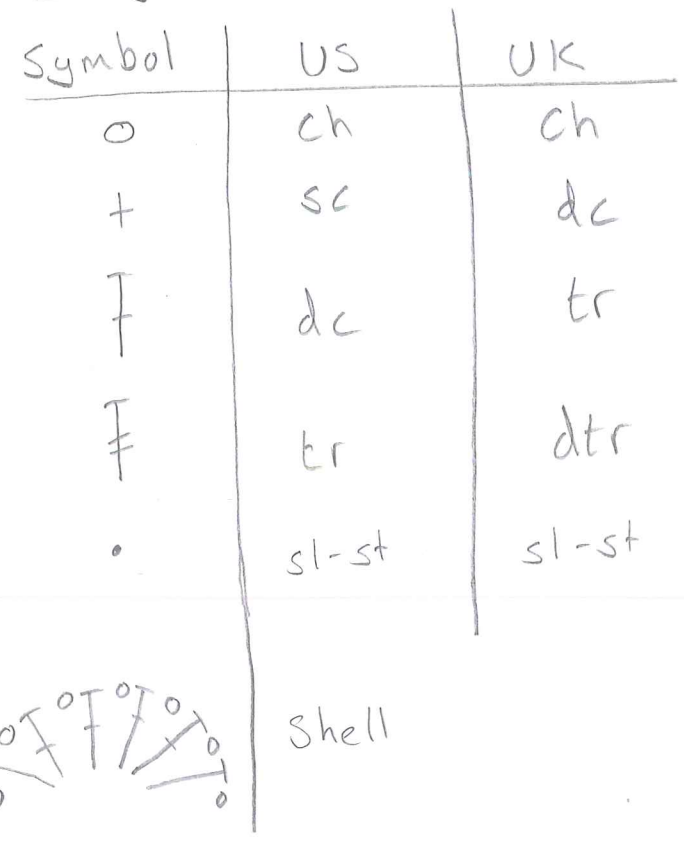 Symbol US UK
o ch ch
+ sc dc
dc tr
tr dtr
• sl-st sl-st
Shell